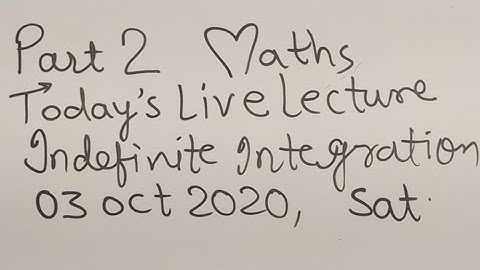 Part 2 Maths
Today's Live Lecture
Indefinite Integration
03 Oct 2020, Sat.